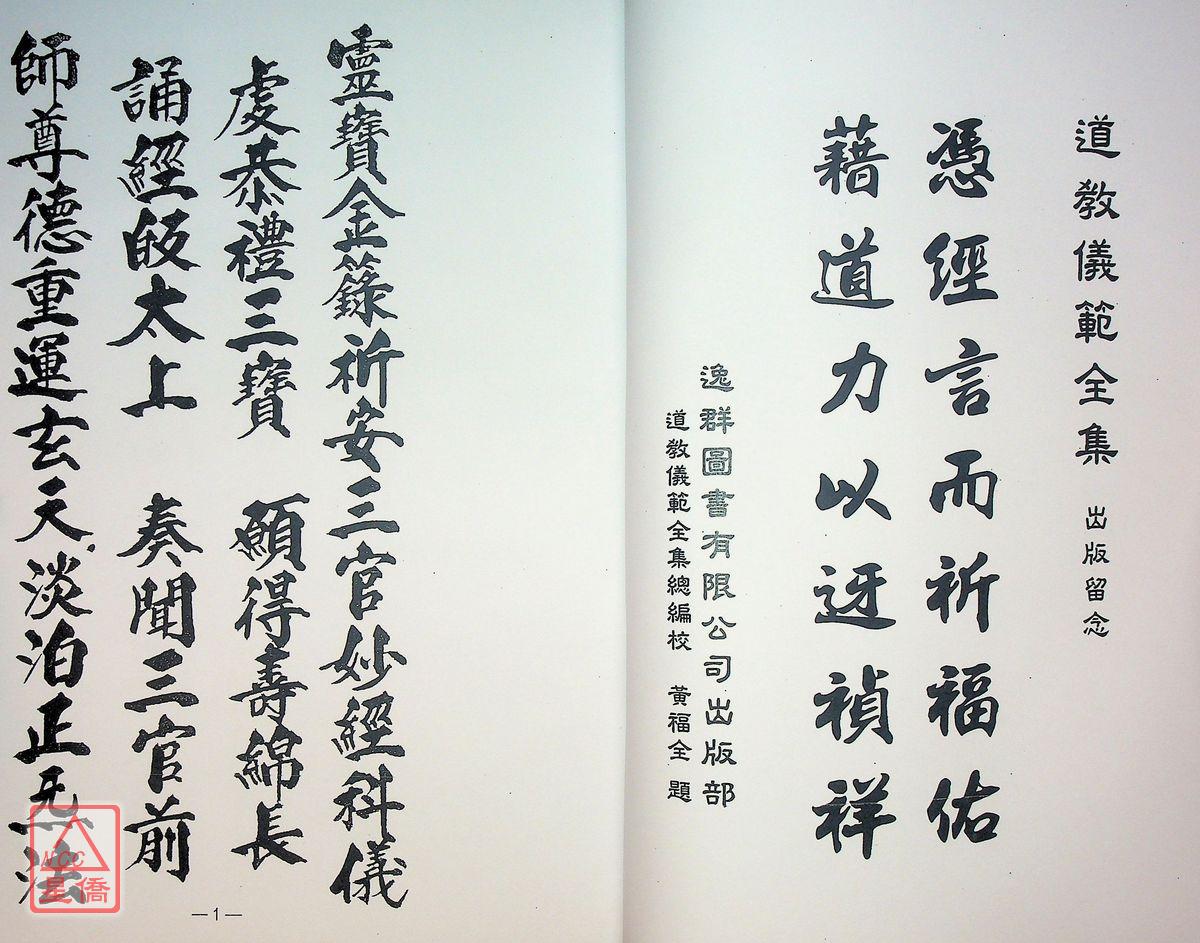 道教儀範全集 出版留念
憑經言而祈福佑
藉道力以迓禎祥
逸群圖書有限公司出版部
道教儀範全集總編校 黃福全 題
靈寶金籙祈安三官妙經科儀
虔恭禮三寶 願得壽綿長
誦經皈太上 奏聞三官前
師尊德重運玄天淡泊正無法
—1—
NCC
星僑